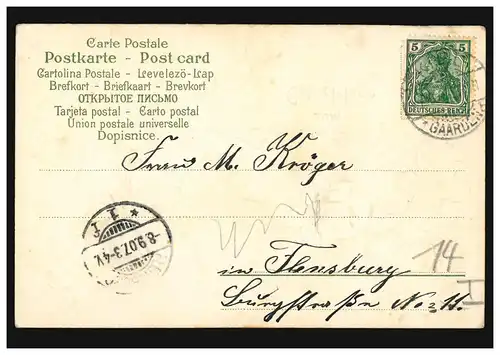 Carte Postale
Postkarte - Post card
Cartolina Postale - Levelező-Lap
Brefkort - Briefkaart - Brevkort
ОТКРЫТОЕ ПИСЬМО
Tarjeta postal - Carto postal
Union postale universelle
Dopisnice.
5 5
DEUTSCHES REICH
GAARDEN
Frau M. Kröger
* 1 I
-8.9.07.3-4V.
14
in Flensburg
Burgstraße No 11.